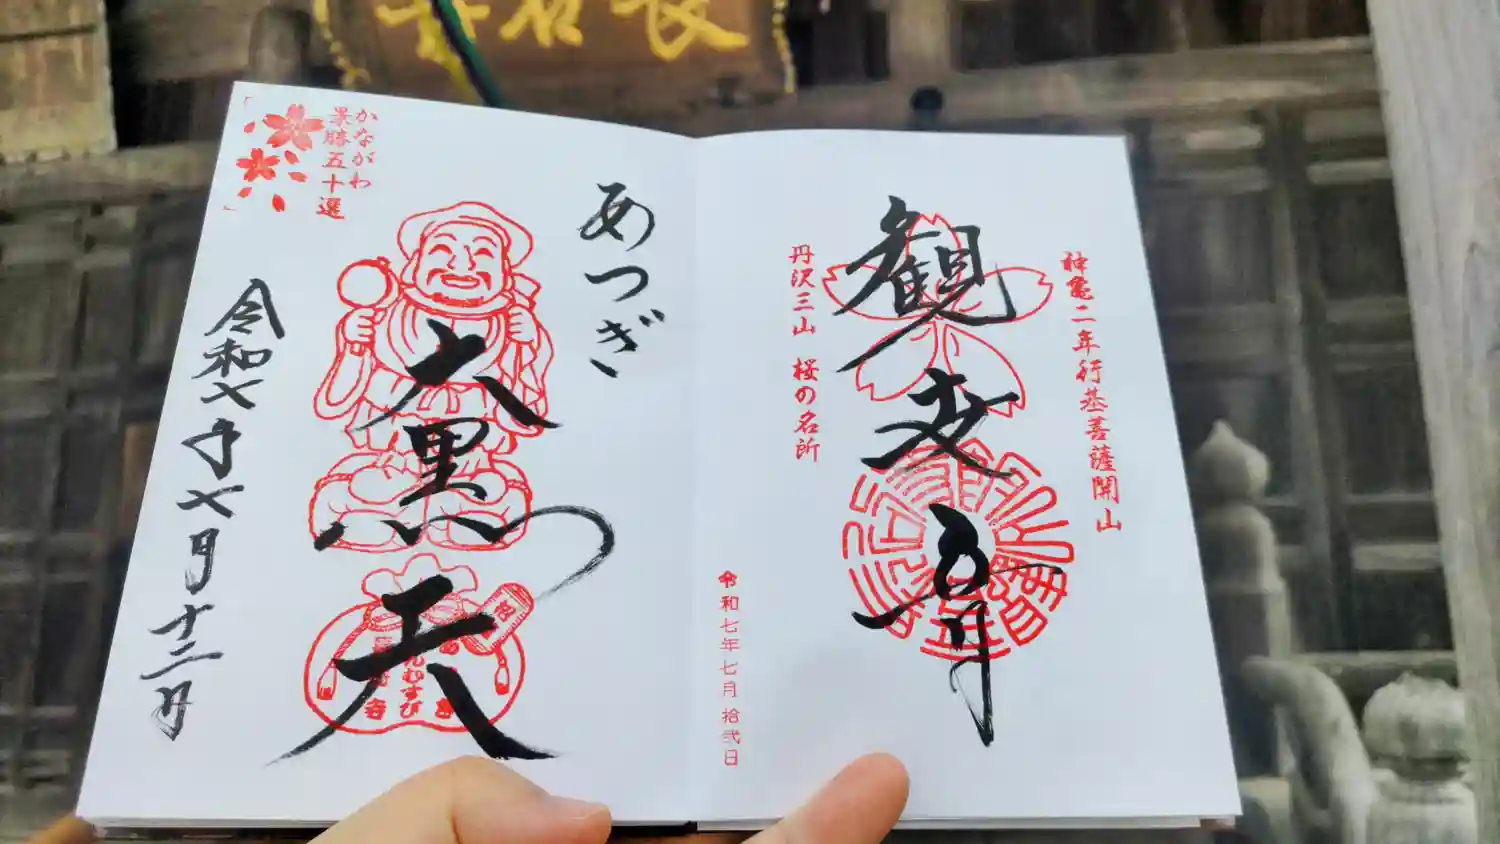 長谷寺
神亀二年行基菩薩開山
観世音
丹沢三山 桜の名所
令和七年七月拾弐日
あつぎ
大黒天
令和七年七月十二日
かながわ
景勝五十選